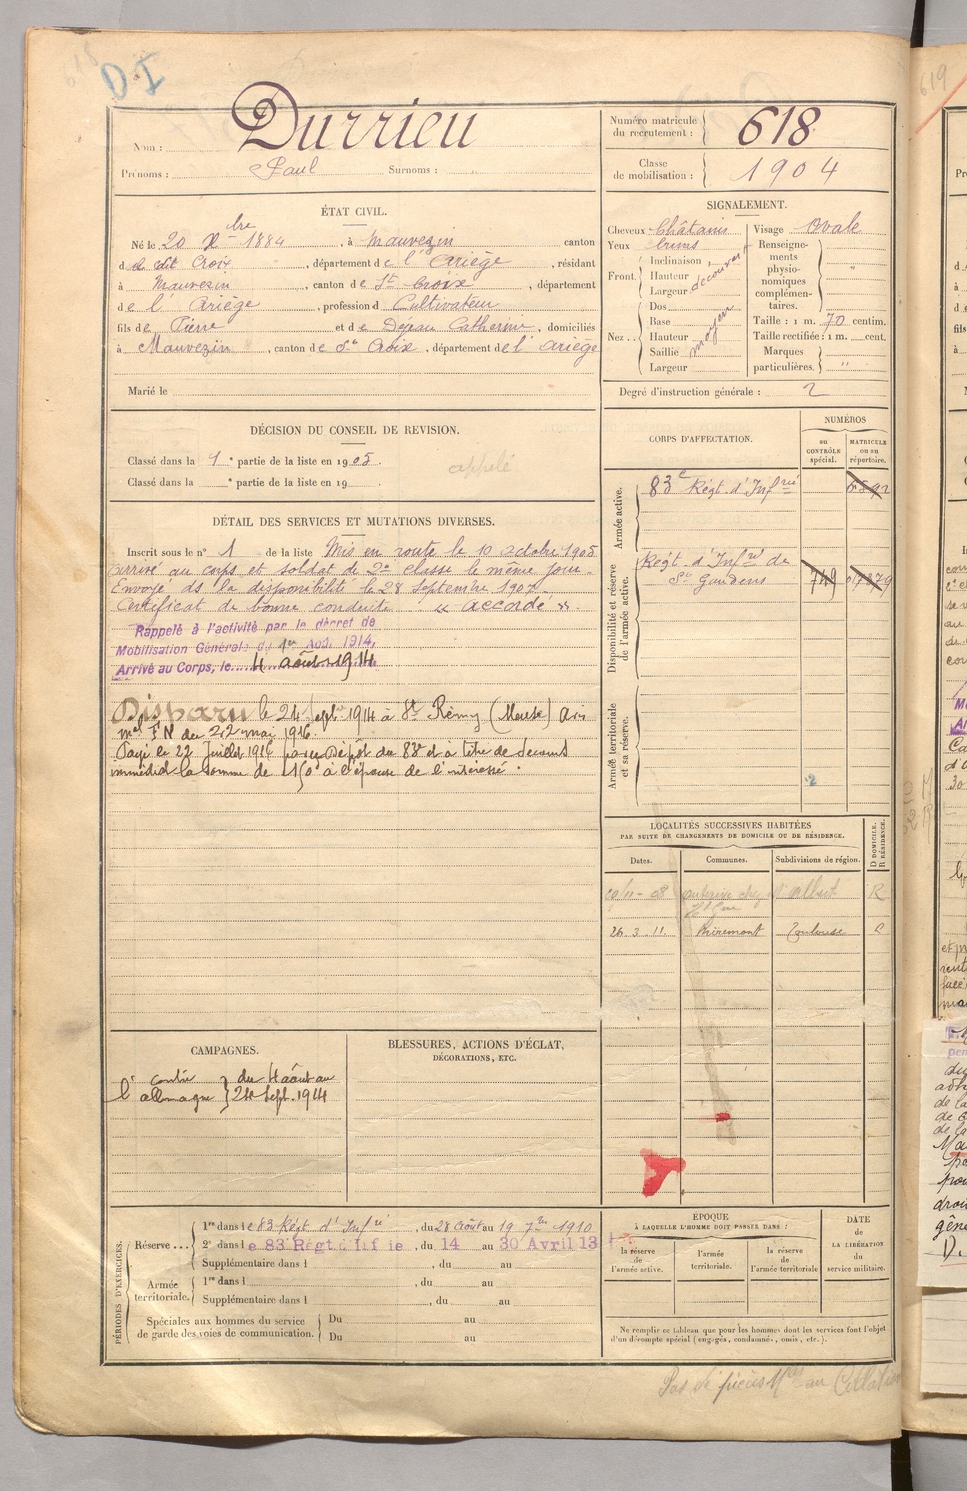 D I
Nom : Durrieu
Prénoms : Paul Surnoms :
Numéro matricule du recrutement : 618
Classe de mobilisation : 1904
ÉTAT CIVIL.
Né le 20 Xbre 1884, à Mauvezin canton
de dit Croix, département de l'Ariège, résidant
à Mauvezin, canton de Ste Croix, département
de l'Ariège, profession d Cultivateur
fils de Pierre et de Dejean Catherine, domiciliés
à Mauvezin, canton de Ste Croix, département de l'Ariège
Marié le
SIGNALEMENT.
Cheveux Châtains
Yeux bruns
Front. Inclinaison, Hauteur, Largeur découvert
Nez .. Dos, Base, Hauteur, Saillie, Largeur moyen
Visage Ovale
Renseignements physionomiques complémentaires. "
Taille : 1 m. 70 centim.
Taille rectifiée : 1 m. cent.
Marques particulières. "
Degré d'instruction générale : 2
DÉCISION DU CONSEIL DE REVISION.
Classé dans la 1e partie de la liste en 1905.
appelé
Classé dans la e partie de la liste en 19 .
DÉTAIL DES SERVICES ET MUTATIONS DIVERSES.
Inscrit sous le n° 1 de la liste Mis en route le 10 octobre 1905
arrivé au corps et soldat de 2e classe le même jour.
Envoyé ds la disponibilité le 28 Septembre 1907.
Certificat de bonne conduite : « accordé ».
Rappelé à l'activité par le décret de
Mobilisation Générale du 1er Août 1914,
Arrivé au Corps, le 4 août 1914
Disparu le 24 Septbre 1914 à St Rémy (Meuse) Avis
mel F N du 22 mai 1916.
Payé le 22 Juillet 1916 par le Dépôt du 83e et à titre de secours
immédiat la somme de 150f à l'épouse de l'intéressé.
CORPS D'AFFECTATION.
NUMÉROS
au CONTRÔLE spécial.
MATRICULE ou au répertoire.
Armée active.
83e Régt d'Infrie
Disponibilité et réserve de l'armée active.
Régt d'Infrie de
St Gaudens 749
Armée territoriale et sa réserve.
2
LOCALITÉS SUCCESSIVES HABITÉES
PAR SUITE DE CHANGEMENTS DE DOMICILE OU DE RÉSIDENCE.
D DOMICILE. R RÉSIDENCE.
Dates. Communes. Subdivisions de région.
R
26.3.11. Miremont Toulouse R
CAMPAGNES.
contre l'allemagne } du 4 août au 24 Sept. 1914
BLESSURES, ACTIONS D'ÉCLAT,
DÉCORATIONS, ETC.
PÉRIODES D'EXERCICES.
Réserve ... 1re dans le 83 Régt d'Infie, du 28 août au 19 7bre 1910
2e dans le 83 Régt d'Infie, du 14 au 30 Avril 13
Supplémentaire dans l , du au
Armée territoriale. 1re dans l , du au
Supplémentaire dans l , du au
Spéciales aux hommes du service de garde des voies de communication. Du au
Du au
ÉPOQUE
À LAQUELLE L'HOMME DOIT PASSER DANS :
la réserve de l'armée active.
l'armée territoriale.
la réserve de l'armée territoriale
DATE DE LA LIBÉRATION du service militaire.
Ne remplir ce tableau que pour les hommes dont les services font l'objet
d'un décompte spécial (engagés, condamnés, omis, etc.).
619